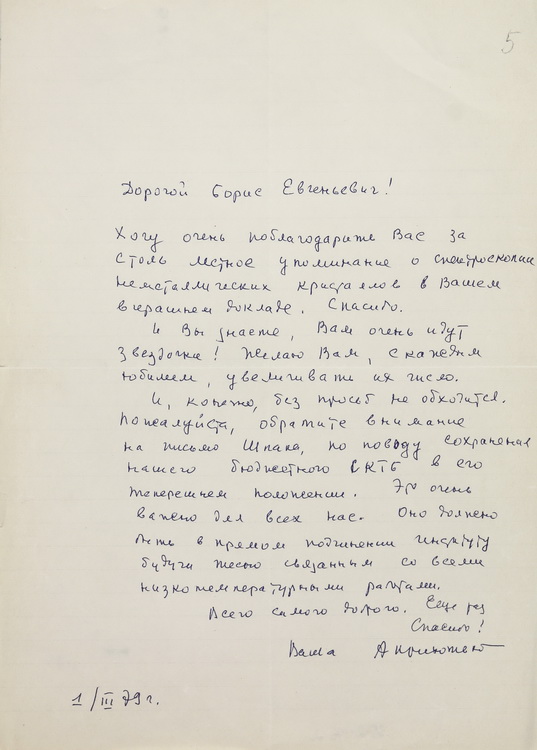 5
Дорогой Борис Евгеньевич!
Хочу очень поблагодарить Вас за
столь лестное упоминание о спектроскопии
неметаллических кристаллов в Вашем
вчерашнем докладе. Спасибо.
И Вы знаете, Вам очень идут
звездочки! Желаю Вам, с каждым
юбилеем, увеличивать их число.
И, конечно, без просьб не обходится.
Пожалуйста, обратите внимание
на письмо Шпака, по поводу сохранения
нашего бюджетного СКТБ в его
теперешнем положении. Это очень
важно для всех нас. Оно должно
быть в прямом подчинении Институту
будучи тесно связанным со всеми
низкотемпературными работами.
Всего самого доброго. Еще раз
Спасибо!
Ваша А Прихотько
1/III 79 г.